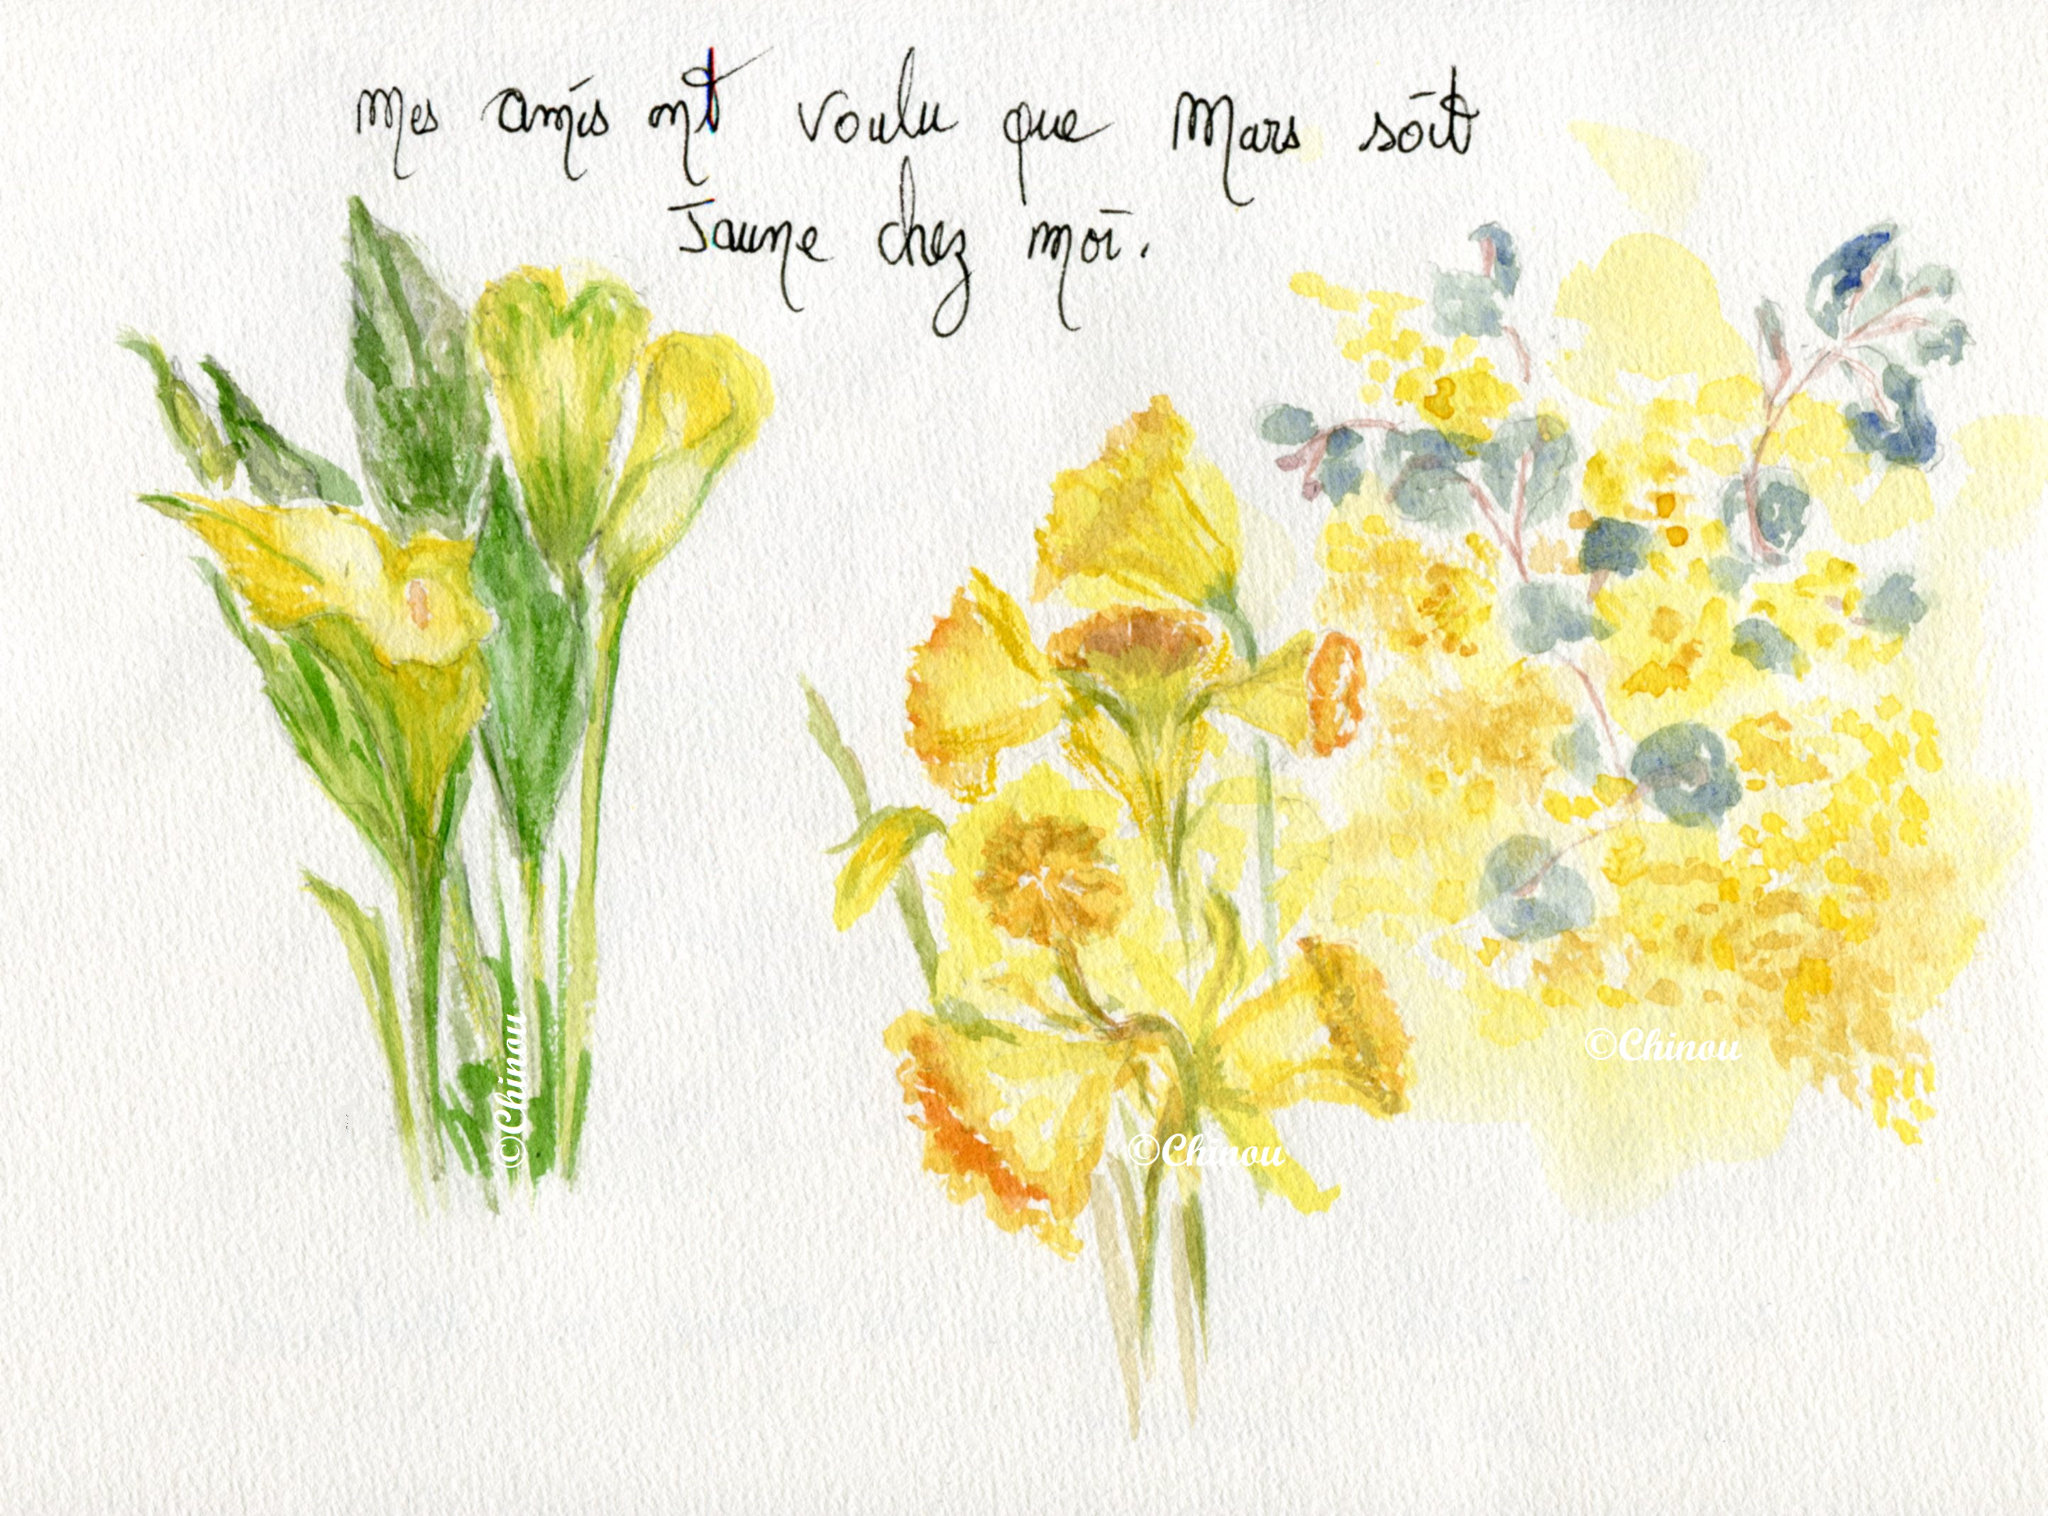 Mes amis ont voulu que Mars soit
Jaune chez moi.
©Chinou
©Chinou
©Chinou